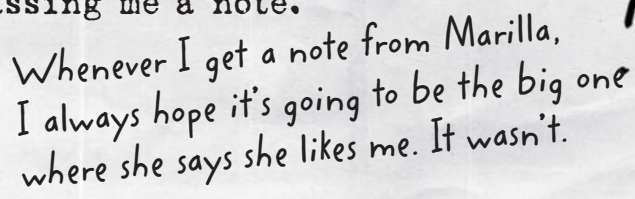 ssing me a note.
Whenever I get a note from Marilla,
I always hope it's going to be the big one
where she says she likes me. It wasn't.